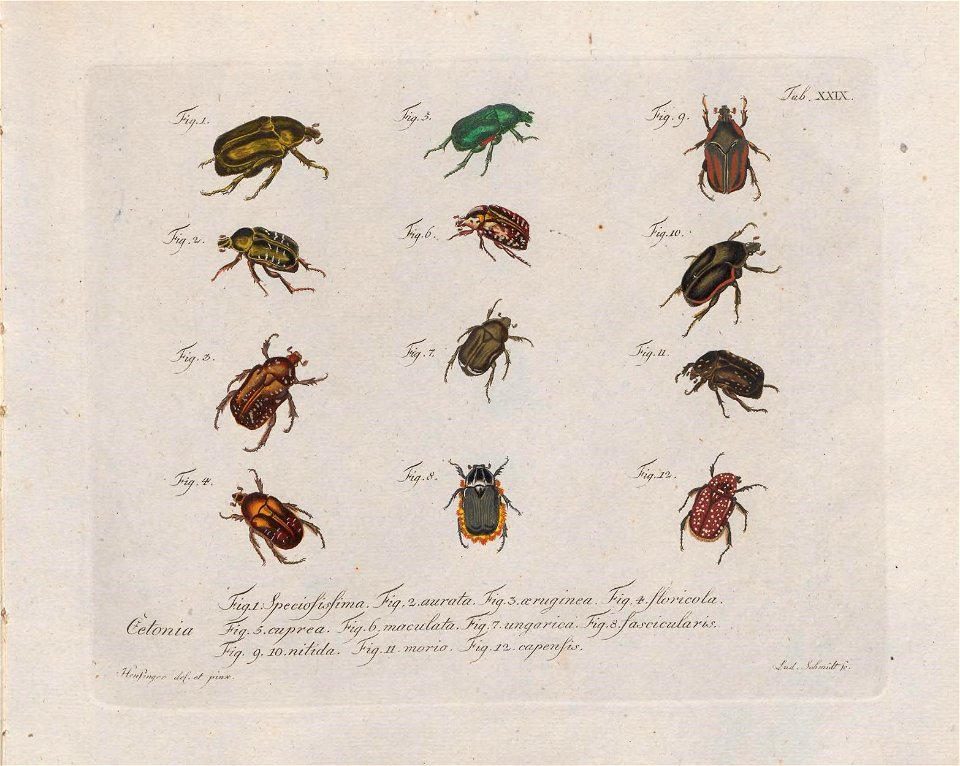 Tab. XXIX.
Fig. 1.
Fig. 5.
Fig. 9.
Fig. 2.
Fig. 6.
Fig. 10.
Fig. 3.
Fig. 7.
Fig. 11.
Fig. 4.
Fig. 8.
Fig. 12.
Fig. 1. Speciosissima. Fig. 2. aurata. Fig. 3. æruginea. Fig. 4. floricola.
Cetonia Fig. 5. cuprea. Fig. 6. maculata. Fig. 7. ungarica. Fig. 8. fascicularis.
Fig. 9. 10. nitida. Fig. 11. morio. Fig. 12. capensis.
Heusinger del. et pinx. Lud. Schmidt sc.